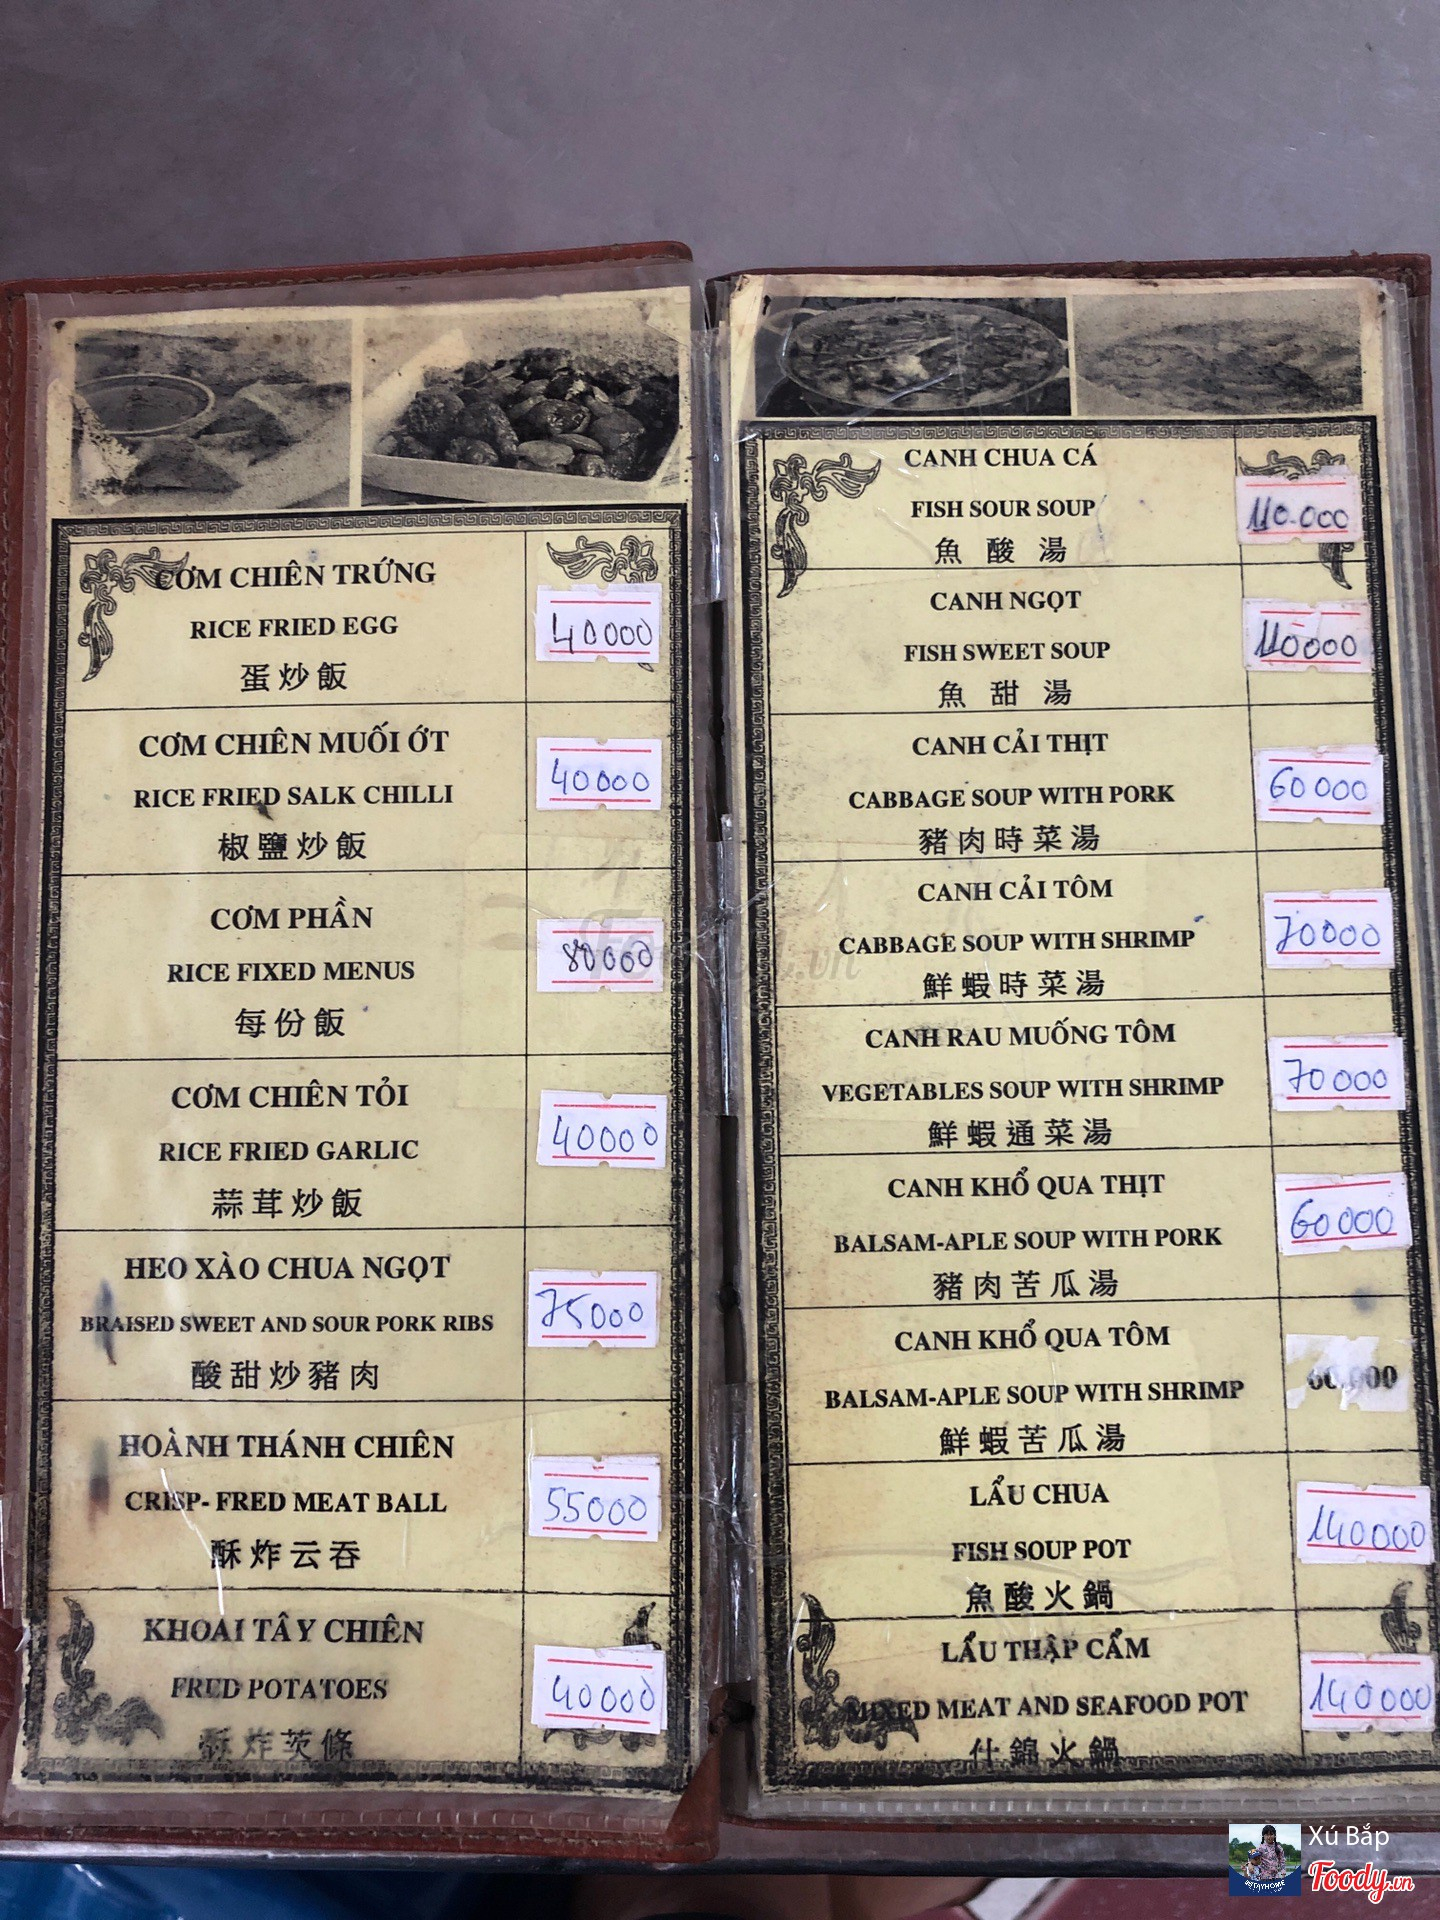 CƠM CHIÊN TRỨNG
RICE FRIED EGG
40000
蛋炒飯
CƠM CHIÊN MUỐI ỚT
RICE FRIED SALK CHILLI
40000
椒鹽炒飯
CƠM PHẦN
RICE FIXED MENUS
80000
每份飯
CƠM CHIÊN TỎI
RICE FRIED GARLIC
40000
蒜茸炒飯
HEO XÀO CHUA NGỌT
BRAISED SWEET AND SOUR PORK RIBS
75000
酸甜炒豬肉
HOÀNH THÁNH CHIÊN
CRISP- FRED MEAT BALL
55000
酥炸云吞
KHOAI TÂY CHIÊN
FRED POTATOES
40000
酥炸茨條
CANH CHUA CÁ
FISH SOUR SOUP
110.000
魚酸湯
CANH NGỌT
FISH SWEET SOUP
110000
魚甜湯
CANH CẢI THỊT
CABBAGE SOUP WITH PORK
60000
豬肉時菜湯
CANH CẢI TÔM
CABBAGE SOUP WITH SHRIMP
70000
鮮蝦時菜湯
CANH RAU MUỐNG TÔM
VEGETABLES SOUP WITH SHRIMP
70000
鮮蝦通菜湯
CANH KHỔ QUA THỊT
BALSAM-APLE SOUP WITH PORK
60000
豬肉苦瓜湯
CANH KHỔ QUA TÔM
BALSAM-APLE SOUP WITH SHRIMP
60.000
鮮蝦苦瓜湯
LẨU CHUA
FISH SOUP POT
140000
魚酸火鍋
LẨU THẬP CẨM
MIXED MEAT AND SEAFOOD POT
140000
什錦火鍋
Foody.vn
Xú Bắp
Foody.vn